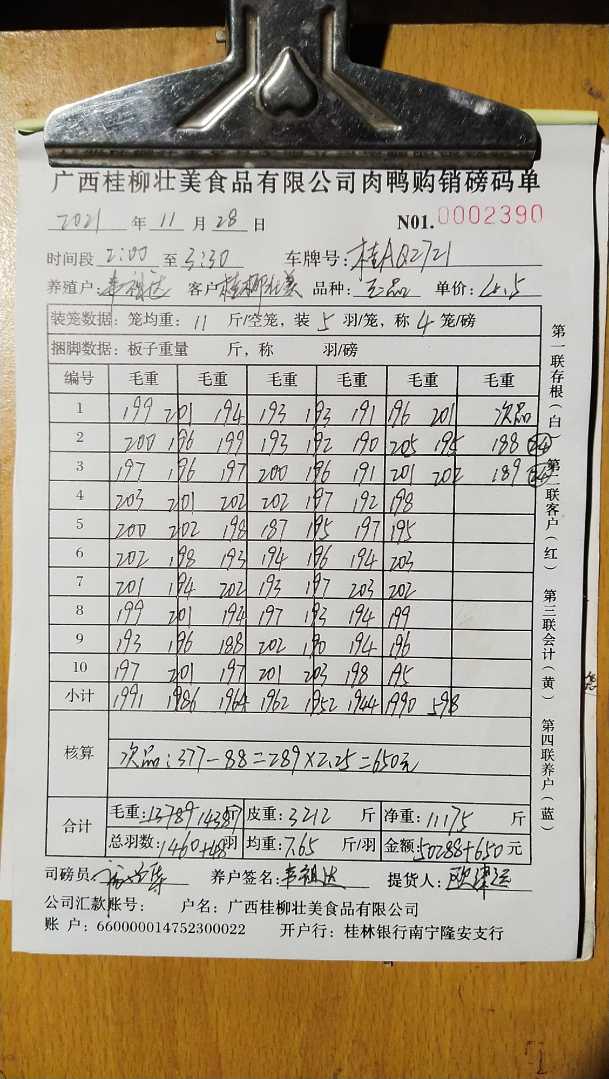 广西桂柳壮美食品有限公司肉鸭购销磅码单
2021 年 11 月 28 日 N01. 0002390
时间段 2:00 至 3:30 车牌号: 桂AQ2721
养殖户: 韦祖达 客户 桂柳壮美 品种: 正品 单价: 4.5
装笼数据: 笼均重: 11 斤/空笼, 装 5 羽/笼, 称 4 笼/磅
捆脚数据: 板子重量 斤, 称 羽/磅
编号 毛重 毛重 毛重 毛重 毛重 毛重
1 199 201 194 193 193 191 196 201 次品
2 200 196 199 193 192 190 205 195 188 24
3 197 196 197 200 196 191 201 202 189 24
4 203 201 202 202 197 192 198
5 200 202 198 187 195 197 195
6 202 198 193 194 196 194 203
7 201 194 202 193 197 203 202
8 199 201 194 197 193 194 199
9 193 196 188 202 190 194 196
10 197 201 197 201 203 198 195
小计 1991 1986 1964 1962 1952 1944 1990 598
核算 次品: 377-88=289×2.25=650元
合计 毛重: 13789 14387 斤 皮重: 3212 斤 净重: 11175 斤
总羽数: 1460+48 羽 均重: 7.65 斤/羽 金额: 50288+650 元
司磅员: 养户签名: 韦祖达 提货人:
公司汇款账号: 户名: 广西桂柳壮美食品有限公司
账 户: 660000014752300022 开户行: 桂林银行南宁隆安支行
第一联存根(白) 第二联客户(红) 第三联会计(黄) 第四联养户(蓝)